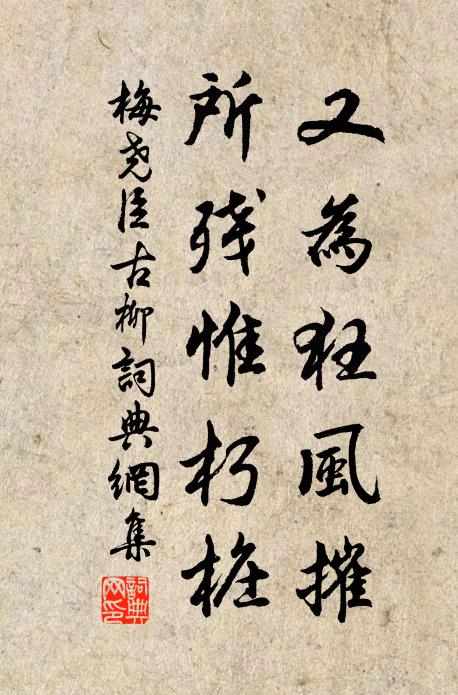 又為狂風摧
所殘惟朽樁
梅堯臣古柳詞典網集
詞典
网印